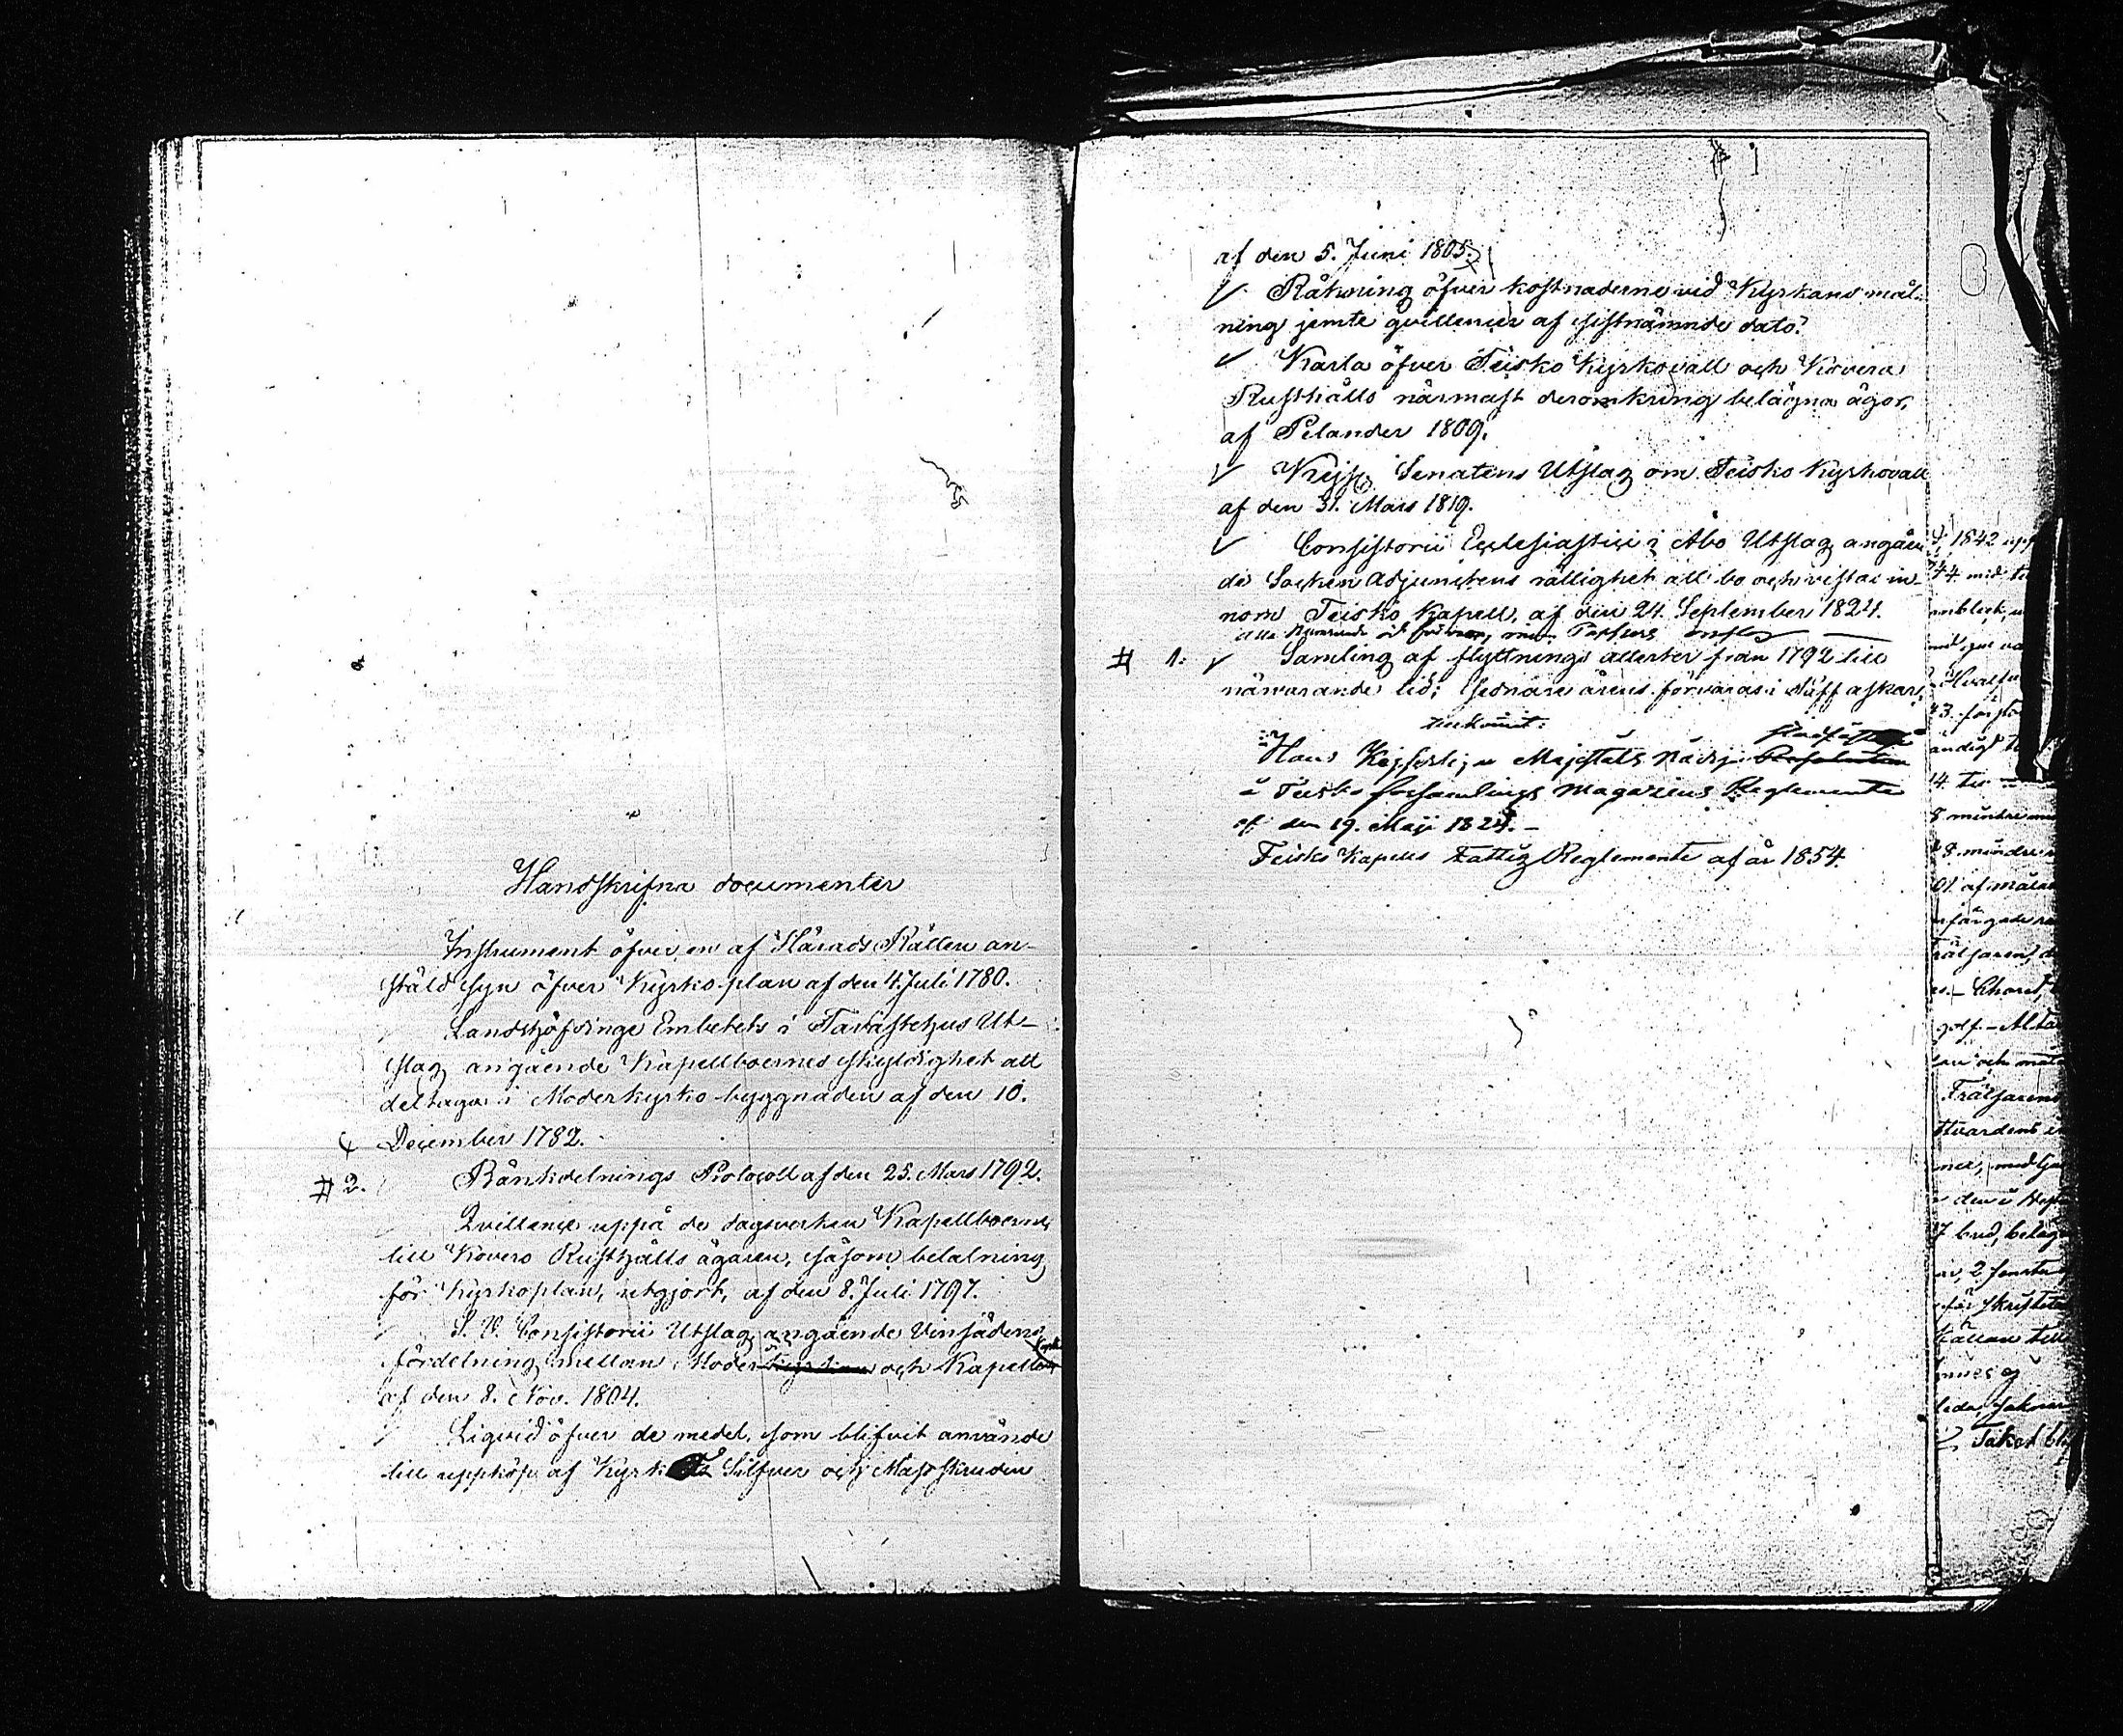 Handskrifna documenter
Instrument öfver en af Härads Rätten an-
ställd syn öfver Kyrko plan af den 4. Juli 1780.
Landshöfdinge Embetets i Tavastehus Ut-
slag angående Kapellboernes skyldighet att
deltaga i Moderkyrko byggnaden af den 10.
December 1782.
# 2. Bänkdelnings Protocoll af den 25. Mars 1792.
Qvittence uppå de dagsverken Kapellboerne
till Kovero Rusthålls ägaren, såsom betalning
för Kyrkoplan, utgjort, af den 8. Juli 1797.
S. V. Consistorii Utslag angående Vinsädens
fördelning mellan Moder och Kapell
af den 8. Nov. 1804.
Liqvid öfver de medel, som blifvit använde
till uppköp af Kyrk Silfver och Mässskruden
af den 5. Juni 1805.
Räkning öfver kostnaderne vid Kyrkans mål-
ning jemte qvittencer af sistnämnde dato.
Karta öfver Teisko Kyrkovall och Kovero
Rusthålls närmast deromkring belägna ägor,
af Pelander 1809.
Kejs. Senatens Utslag om Teisko Kyrkovall
af den 31. Mars 1819.
Consistorii Ecclesiastici i Åbo Utslag angåen
de Socken Adjunctens rättighet att bo och vistas in
nom Teisko Kapell, af den 24. September 1824.
# 1. Samling af flyttnings attester från 1792 till
närvarande tid; sednare årens förvaras i askar.
tillkommit:
Hans Kejserliga Majestäts Nådiga
å Teisko församlings Magazins Reglemente
af den 19. Maji 1824.
Teisko Kapells Fattig Reglemente af år 1854.
1842
44 med
43.
14.
8 mindre
8 mindre
01 af
Choret,
golf. - Alta
Frälsarens
2 fenster
till
Taket